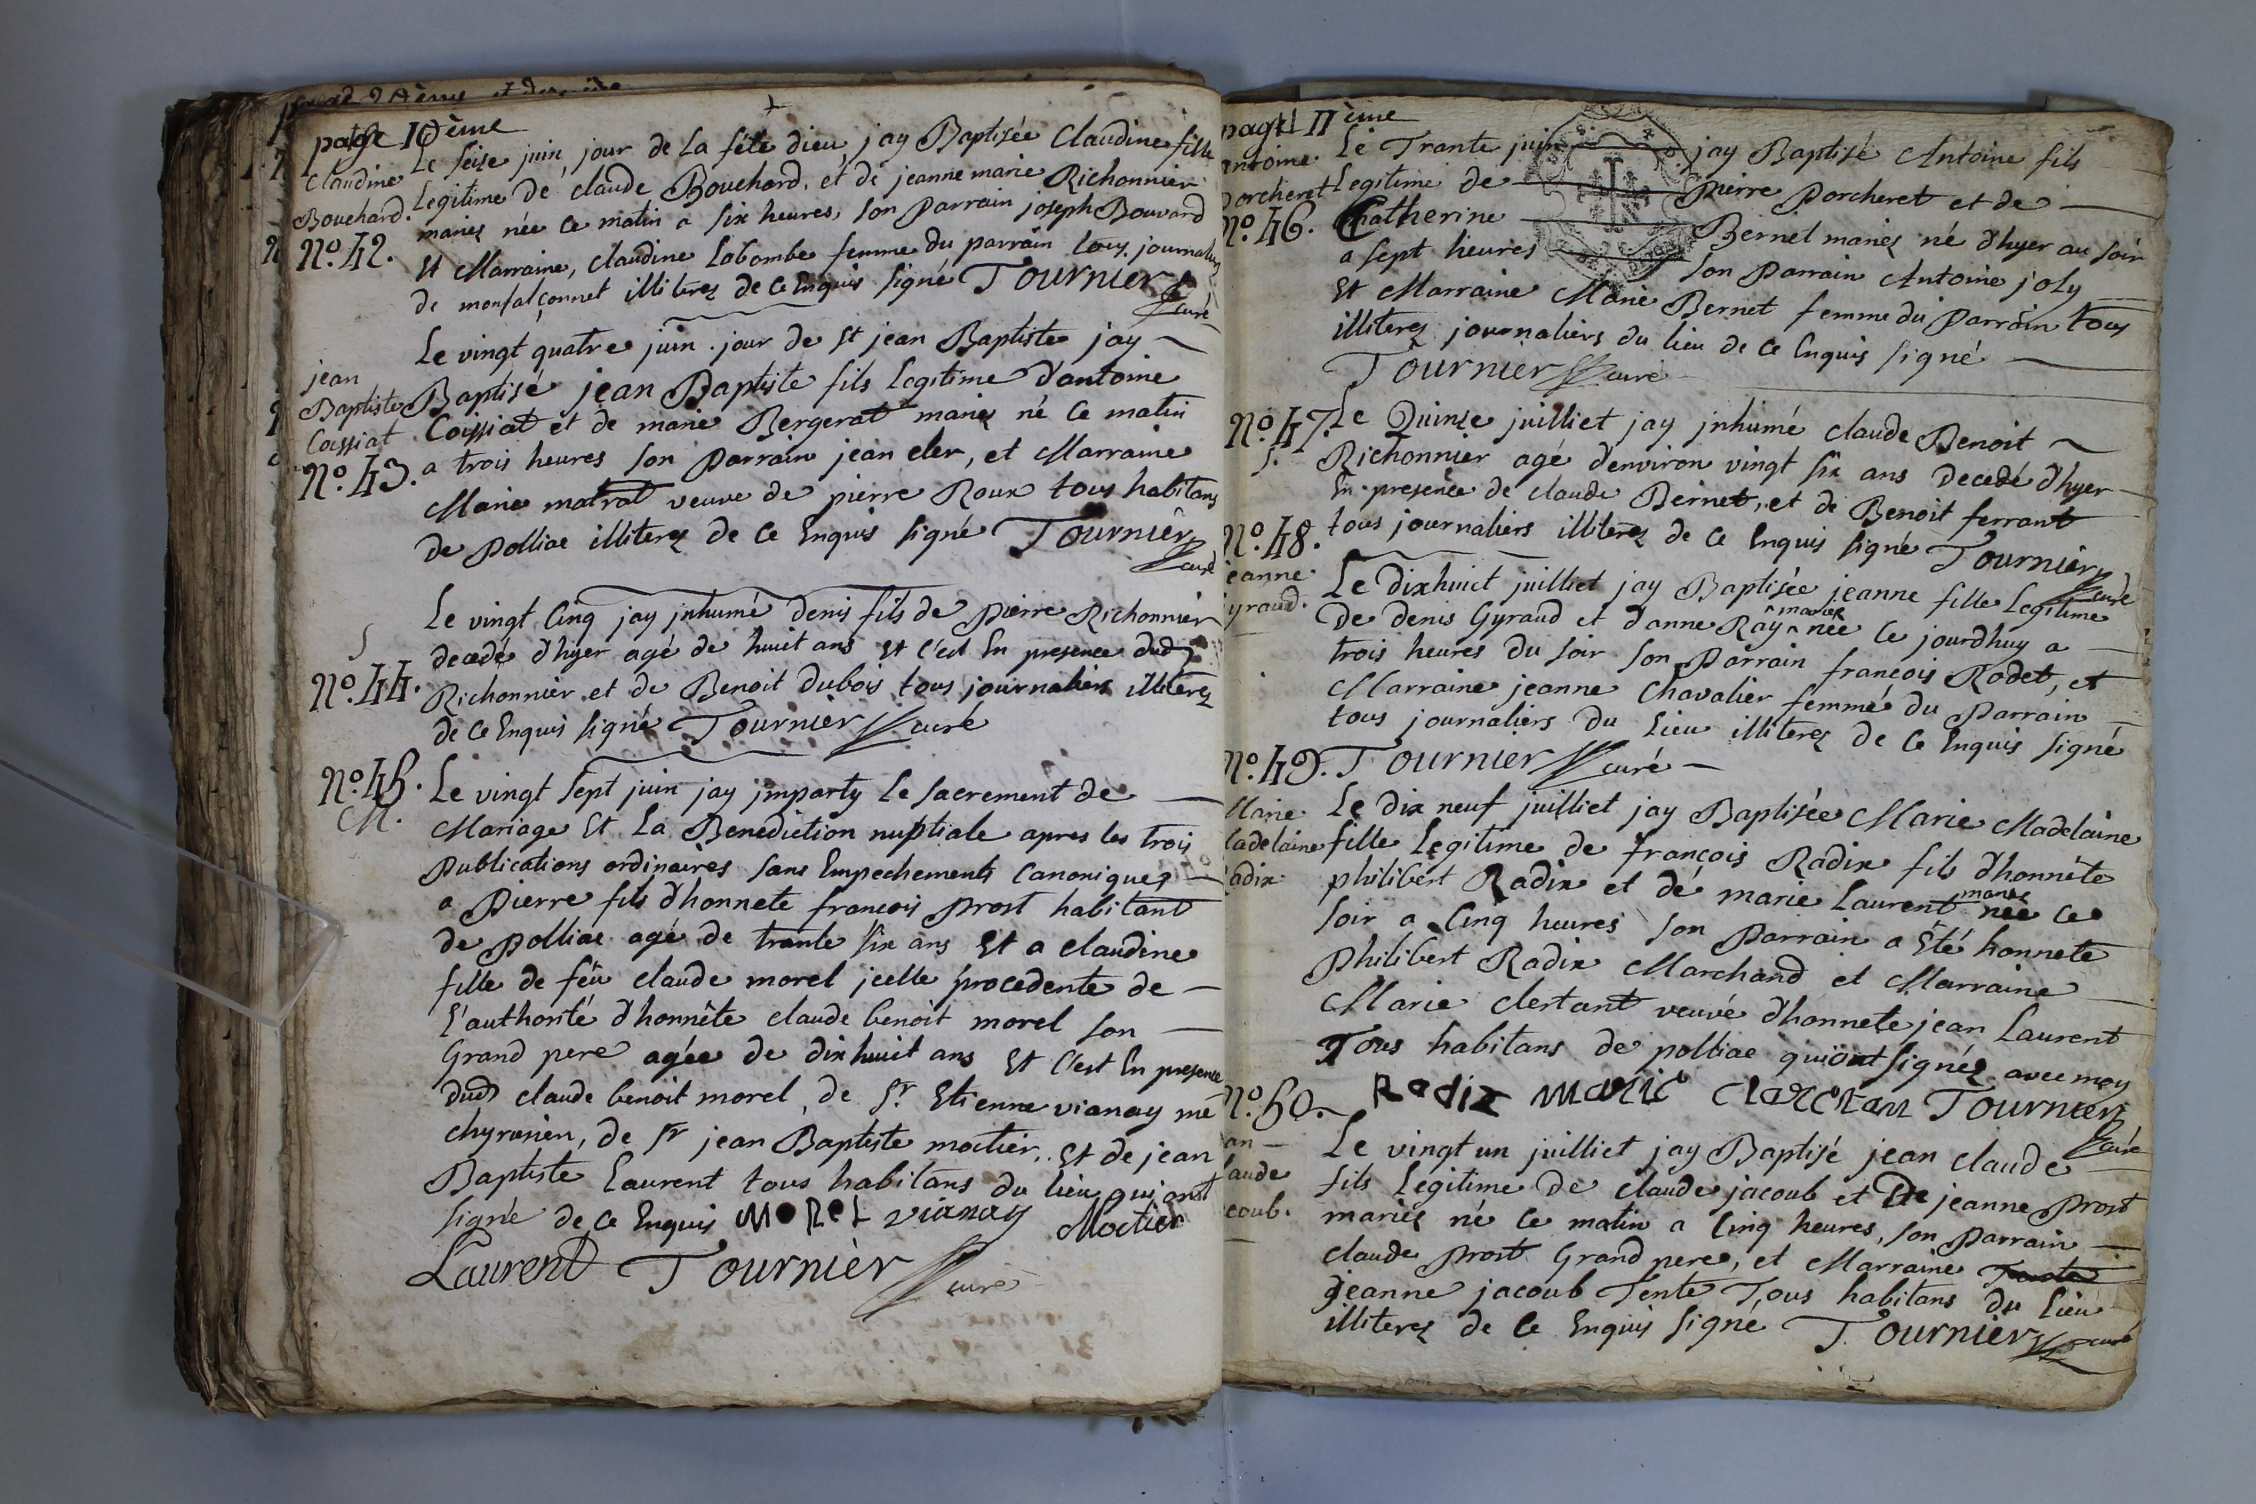 page 10ème
Claudine
Bouchard.
No. 42.
Le seise juin, jour de la féte dieu, jay Baptisée Claudine fille
Legitime de claude Bouchard, et de jeanne marie Richonnier
mariez née ce matin a six heures, son Parrain joseph Bouvard
Et Marraine, claudine Lobombe femme du parrain tous journaliers
de monfalconnet illiterez de ce Enquis signé Tournier curé
jean
Baptiste
Coissiat
No. 43.
Le vingt quatre juin jour de St jean Baptiste jay
Baptisé jean Baptiste fils Legitime d'antoine
Coissiat et de marie Bergerat mariez né ce matin
a trois heures son Parrain jean cler, et Marraine
Marie matrat veuve de pierre Roux tous habitans
de Polliac illiterez de ce Enquis signé Tournier
curé
S
No. 44.
Le vingt cinq jay jnhumé denis fils de Pierre Richonnier
decedé d'hyer agé de huit ans et c'est En presence dud
Richonnier et de Benoit Dubois tous journaliers illiterez
de ce Enquis signé Tournier curé
No. 45.
M.
Le vingt sept juin jay jmparty Le sacrement de
Mariage et La Benediction nuptiale apres les trois
Publications ordinaires sans Empechements Canoniques
a Pierre fils d'honnete francois Prost habitant
de Polliac agé de trante six ans et a claudine
fille de feû claude morel jcelle procedente de
L'authorité d'honnête claude benoit morel son
Grand pere agée de dix huit ans et c'est En presence
dud claude benoit morel, de Sr. Etienne vianay me
chyrurien, de Sr jean Baptiste moctier, et de jean
Baptiste Laurent tous habitans du lieu qui ont
signé de ce Enquis MOREL vianay Moctier
Laurent Tournier curé
page 11ème
antoine
porcheret
No. 46.
Le Trante juin jay Baptisé Antoine fils
Legitime de Pierre Porcheret et de
Catherine Bernet mariez né d'hyer au soir
a sept heures son Parrain Antoine joly
Et Marraine Marie Bernet femme du Parrain tous
illiterez journaliers du lieu de ce Enquis signé
Tournier curé
No. 47.
S.
Le Quinze juilliet jay jnhumé claude Benoit
Richonnier agé d'environ vingt six ans decedé d'hyer
En presence de claude Bernet, et de Benoit ferrant
tous journaliers illiterez de ce Enquis signé Tournier
curé
No. 48.
jeanne
gyraud.
Le dixhuict juilliet jay Baptisée jeanne fille Legitime
de denis Gyraud et d'anne Ray mariez née ce jourdhuy a
trois heures du soir son Parrain francois Rodet, et
Marraine jeanne Chavalier femme du Parrain
tous journaliers du Lieu illiterez de ce Enquis signé
Tournier curé
No. 49.
Marie
Madelaine
Radix
Le dix neuf juilliet jay Baptisée Marie Madelaine
fille Legitime de françois Radix fils d'honnête
philibert Radix et de marie Laurent mariez née ce
soir a Cinq heures son Parrain a Eté honnete
Philibert Radix Marchand et Marraine
Marie clertant veuve d'honnete jean Laurent
Tous habitans de polliac qui ont signéz avec moy
Radix Marie Tournier
curé
No. 50.
jean
claude
jacoub.
Le vingt un juilliet jay Baptisé jean claude
fils Legitime de claude jacoub et De jeanne Prost
mariez né ce matin a Cinq heures, son Parrain
claude Prost Grand pere, et Marraine
jeanne jacoub Tente Tous habitans du Lieu
illiterez de ce Enquis signé Tournier curé